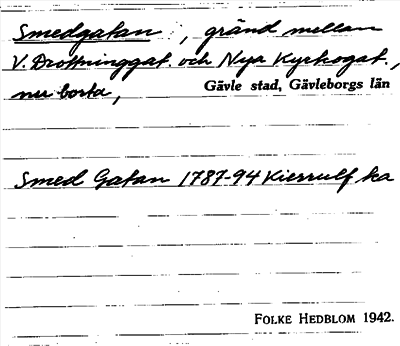 Smedgatan, gränd mellan
V. Drottninggat. och Nya Kyrkogat.,
nu borta, Gävle stad, Gävleborgs län
Smed Gatan 1787-94 Kierrulf ka
FOLKE HEDBLOM 1942.